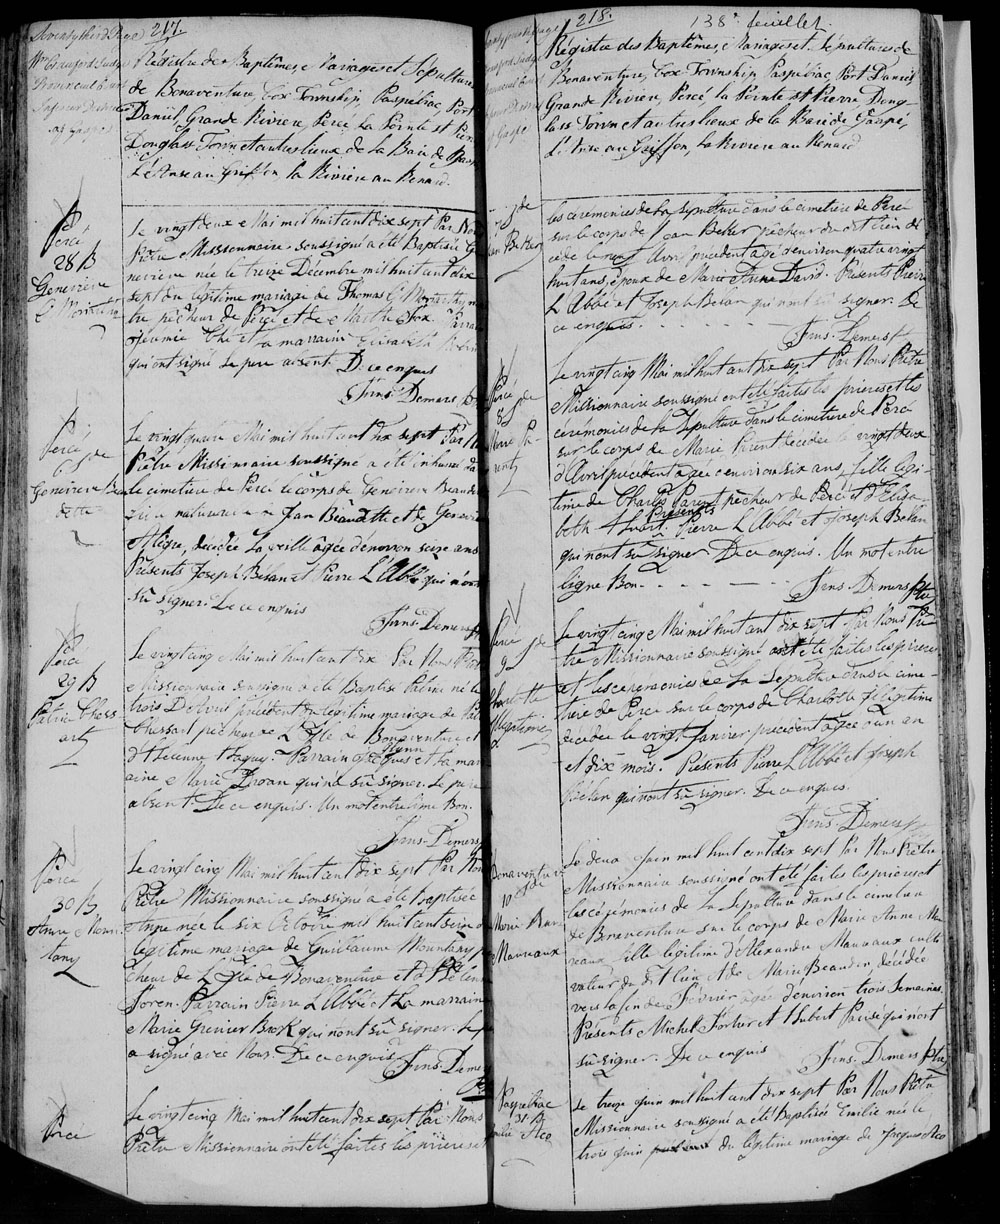 Seventy third Page 217.
Wm Crawford Judge
Provincial Court
Inferior District
of Gaspé
Régistre des Baptêmes, Mariages et Sépultures
de Bonaventure, Cox Township, Paspébiac, Port
Daniel, Grande Rivière, Percé, La Pointe St Pierre
Douglass Town et autres lieux de la Baie de Gaspé
L'Anse au Griffon la Rivière au Renard.
Percé
28 B
Geneviève
Le vingt deux Mai mil huit cent dix sept Par Nous
Prêtre Missionnaire soussigné a été Baptisée Ge
neviève née le treize Décembre mil huit cent dix
sept du légitime mariage de Thomas
tre pêcheur de Percé et de Marthe Fox. Parrain
et la marraine
qui ont signé Le pere absent. De ce enquis
Frns. Demers Ptre
Percé
Geneviève Beau
dette
Le vingt quatre Mai mil huit cent dix sept Par Nous
Prêtre Missionnaire soussigné a été inhumé dans
le cimetière de Percé le corps de Geneviève Beaudet
naturelle de Jean Beaudette et de Geneviève
Alègre, décédée la veille âgée d'environ seize ans
Présents Joseph Bélan et Pierre L'Abbé qui n'ont
sû signer. De ce enquis
Frns. Demers Ptre
Percé
29 B
Patrice Chess
art
Le vingt cinq Mai mil huit cent dix Par Nous Prêtre
Missionnaire soussigné a été Baptisé Patrice né le
trois D'Avril précédent du légitime mariage de
Chessart pêcheur de L'Isle de Bonaventure et
d'Helenne Parrain Jacques Flynn et la marr
aine Marie qui n'a sû signer. Le pere
absent. De ce enquis. Un mot entre ligne Bon.
Frns. Demers
Percé
30 B
Anne Moun
tany
Le vingt cinq Mai mil huit cent dix sept Par Nous
Prêtre Missionnaire soussigné a été baptisée
Anne née le six Octobre mil huit cent seize du
légitime mariage de Guillaume Mountany pê
cheur de L'Isle de Bonaventure et d'Hélenne
Parrain Pierre L'Abbé et La marraine
Marie Grenier qui n'ont sû signer. Le père
a signé avec Nous De ce enquis
Frns. Demers
Ptre
Percé
Le vingt cinq Mai mil huit cent dix sept Par Nous
Prêtre Missionnaire ont été faites les prières et
218. 138e feuillet.
Seventy fourth page
Crawford Judge
Provincial Court
of Gaspé
Régistre des Baptêmes, Mariages et Sépultures de
Bonaventure, Cox Township, Paspébiac, Port Daniel
Grande Rivière, Percé, la Pointe St Pierre, Doug-
lass Town et autres lieux de la Baie de Gaspé,
L'Anse au Griffon, la Rivière au Renard.
Jean Beker
les cérémonies de la Sépulture dans le cimetière de Percé
sur le corps de Jean Beker pêcheur du dit lieu dé
cédé le neuf Avril précédent agé d'environ quatre vingt
huit ans, époux de Marie Anne David. Présents Pierre
L'Abbé et Joseph Belan qui n'ont sû signer. De
ce enquis.
Frns. Demers Ptre
Percé
8 S
Marie Pa
rent
Le vingt cinq Mai mil huit cent dix sept Par Nous Prêtre
Missionnaire soussigné ont été faites les prières et les
cérémonies de la Sépulture dans le cimetière de Percé
sur le corps de Marie Parent décédée le vingt deux
d'Avril précédent agée d'environ six ans, fille légi-
time de Charles Parent pêcheur de Percé et d'Elisa
beth Présents Pierre L'Abbé et Joseph Belan
qui n'ont sû signer De ce enquis. Un mot entre
ligne Bon.
Frns. Demers Ptre
Percé
9
Charlotte
illégitime
Le vingt cinq Mai mil huit cent dix sept Par Nous Prê
tre Missionnaire soussigné ont été faites les prières
et les ceremonies de la Sépulture dans le cime
tière de Percé sur le corps de Charlotte illégitime
décédée le vingt Janvier précédent agée d'un an
et dix mois. Présents Pierre L'Abbé et Joseph
Beker qui n'ont sû signer. De ce enquis.
Frns. Demers Ptre
Bonaventure
10
Marie Anne
Mauveaux
Le deux Juin mil huit cent dix sept Par Nous Prêtre
Missionnaire soussigné ont été faites les prières et
les cérémonies de la Sépulture dans le cimetière
de Bonaventure sur le corps de Marie Anne Mau
veaux fille légitime d'Alexandre Mauveaux culti
vateur du dit lieu et de Marie Beaudin, décédée
vers la fin de Février agée d'environ trois semaines.
Présents Michel Fortier et Hubert Paisé qui n'ont
sû signer. De ce enquis
Frns. Demers Ptre
Paspébiac
31 B
Emilie Aco
Le treize Juin mil huit cent dix sept Par Nous Prêtre
Missionnaire soussigné a été Baptisée Emilie née le
trois Juin du légitime mariage de Jacques Aco